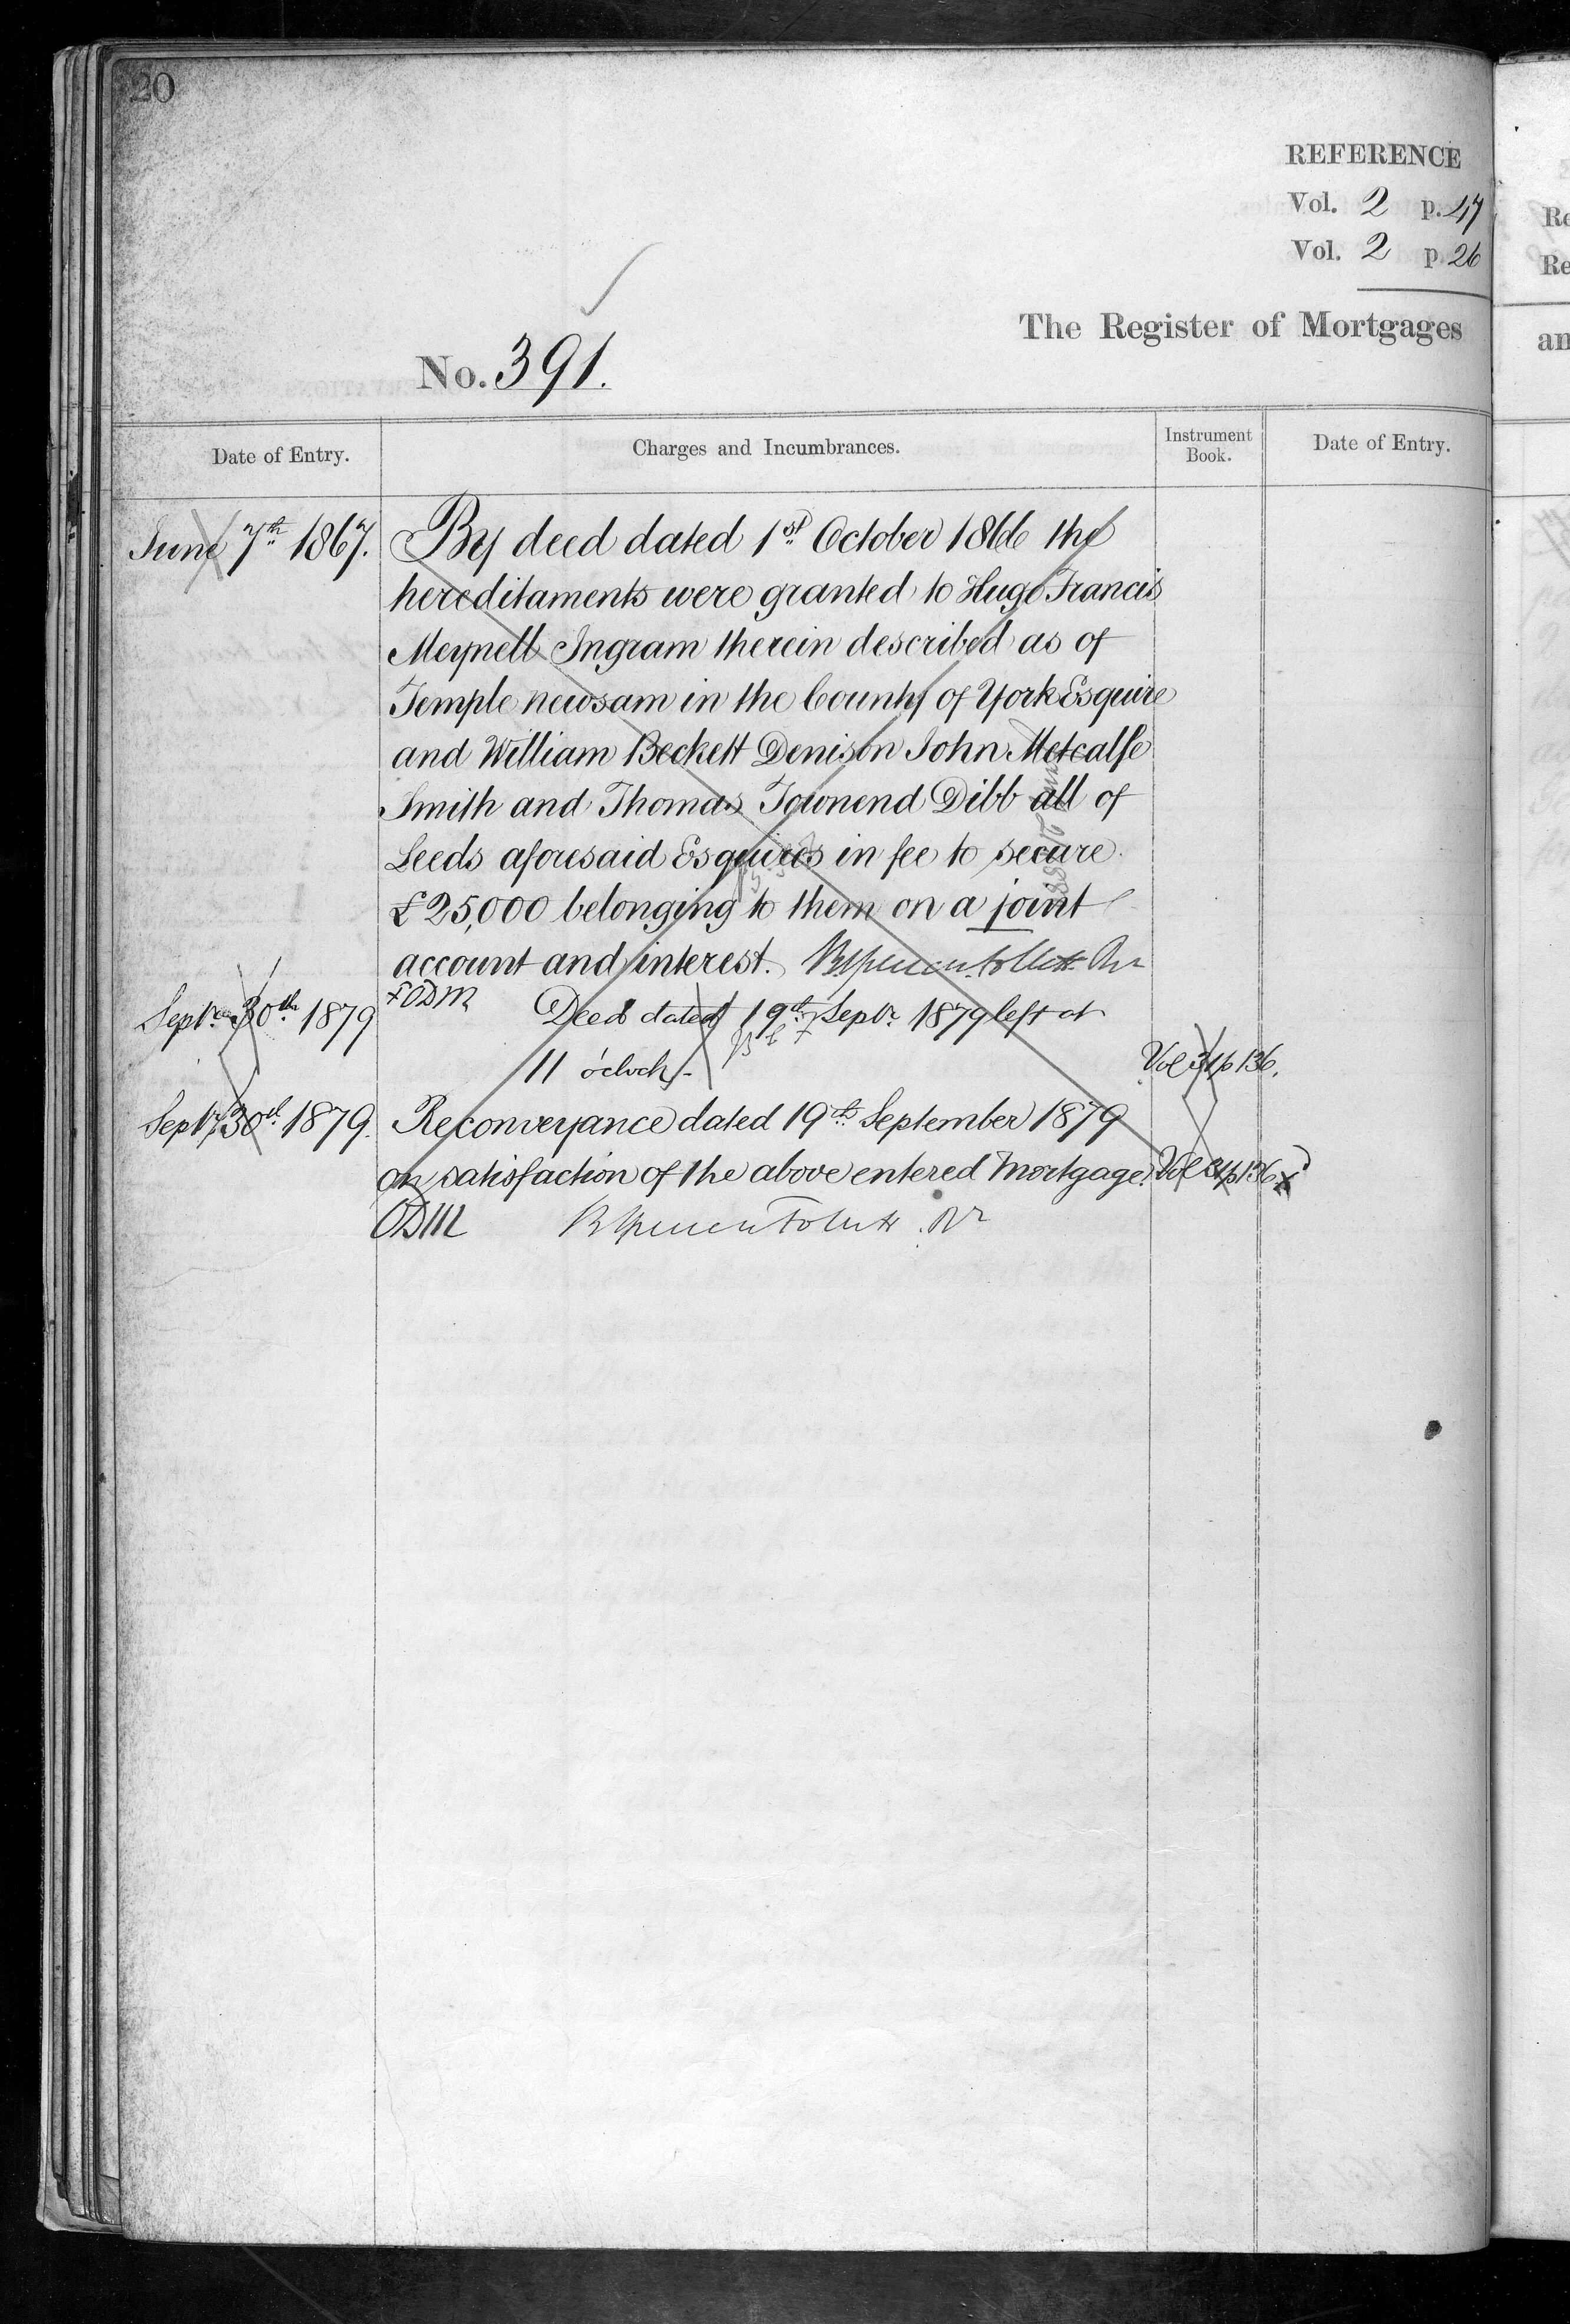 20
REFERENCE
Vol. 2 p. 47
Vol. 2 p. 26
The Register of Mortgages
No. 391.
Date of Entry.
Charges and Incumbrances.
Instrument Book.
Date of Entry.
June 7th 1867.
By deed dated 1st October 1866 the
hereditaments were granted to Hugo Francis
Meynell Ingram therein described as of
Temple newsam in the County of York Esquire
and William Beckett Denison John Metcalfe
Smith and Thomas Townend Dibb all of
Leeds aforesaid Esquires in fee to secure
£25,000 belonging to them on a joint
account and interest.
Septr 30th 1879
Deed dated 19th Septr 1879 left at
11 o'clock.
Vol 31 p 136.
Septr 30th 1879.
Reconveyance dated 19th September 1879
on satisfaction of the above entered Mortgage.
Vol 31 p 136
ODM